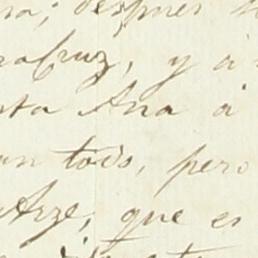 despues
Cruz, y á
ta Ana á
todo, pero
Arze, que es